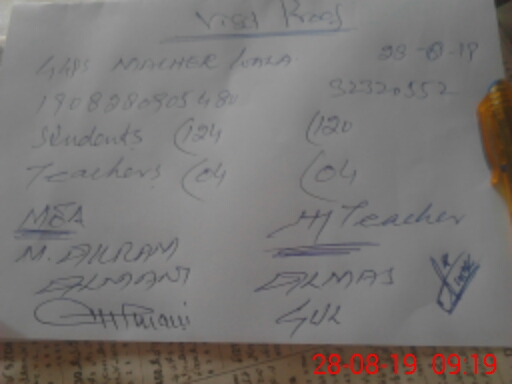 Visit Proof
GGPS MACHER WALA 28-8-19
1908280905480 32320552
Students (124 (120
Teachers (04 (04
MEA H/Teacher
M. AKRAM ALMAS
GUL
28-08-19 09:19